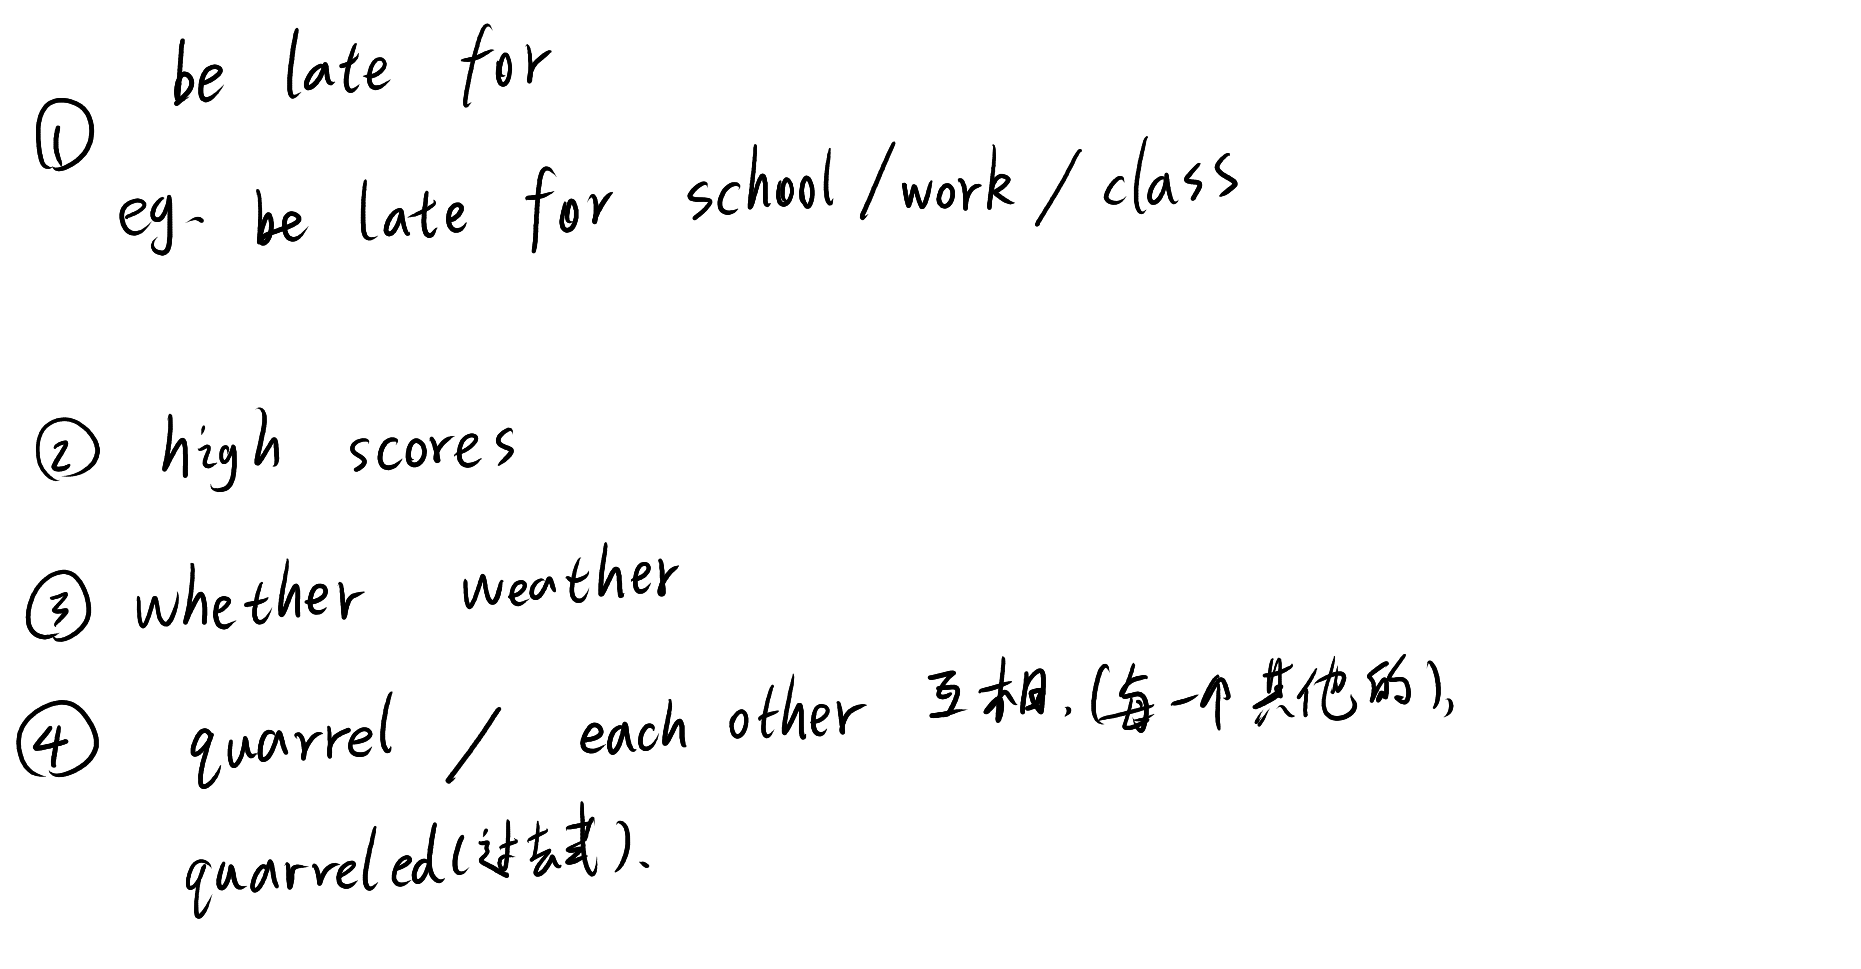 ① be late for
eg. be late for school / work / class
② high scores
③ whether weather
④ quarrel / each other 互相.(每一个其他的),
quarreled(过去式)、